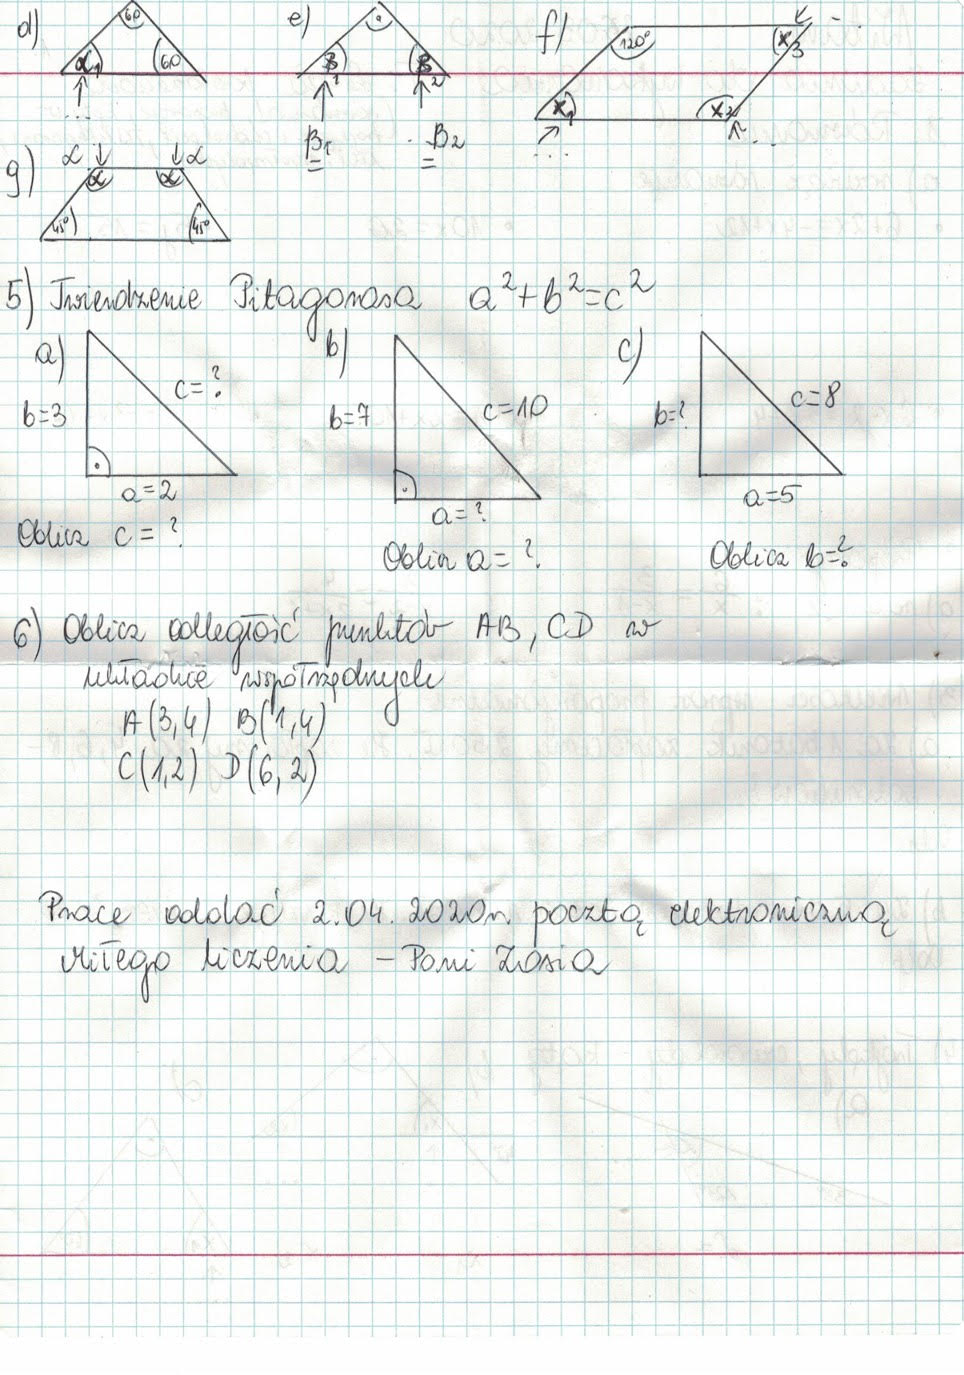 d) 60 α1 60 ...
e) β1 β2 B1 B2
f) 120° x1 x2 x3 ... ...
g) α α α α 45° 45°
5) Twierdzenie Pitagorasa a²+b²=c²
a) b=3 c=? a=2
Oblicz c = ?
b) b=7 c=10 a=?
Oblicz a = ?
c) b=? c=8 a=5
Oblicz b=?
6) Oblicz odległość punktów AB, CD w
układzie współrzędnych
A(3,4) B(1,4)
C(1,2) D(6,2)
Prace oddać 2.04.2020r. pocztą elektroniczną
Miłego liczenia – Pani Zosia